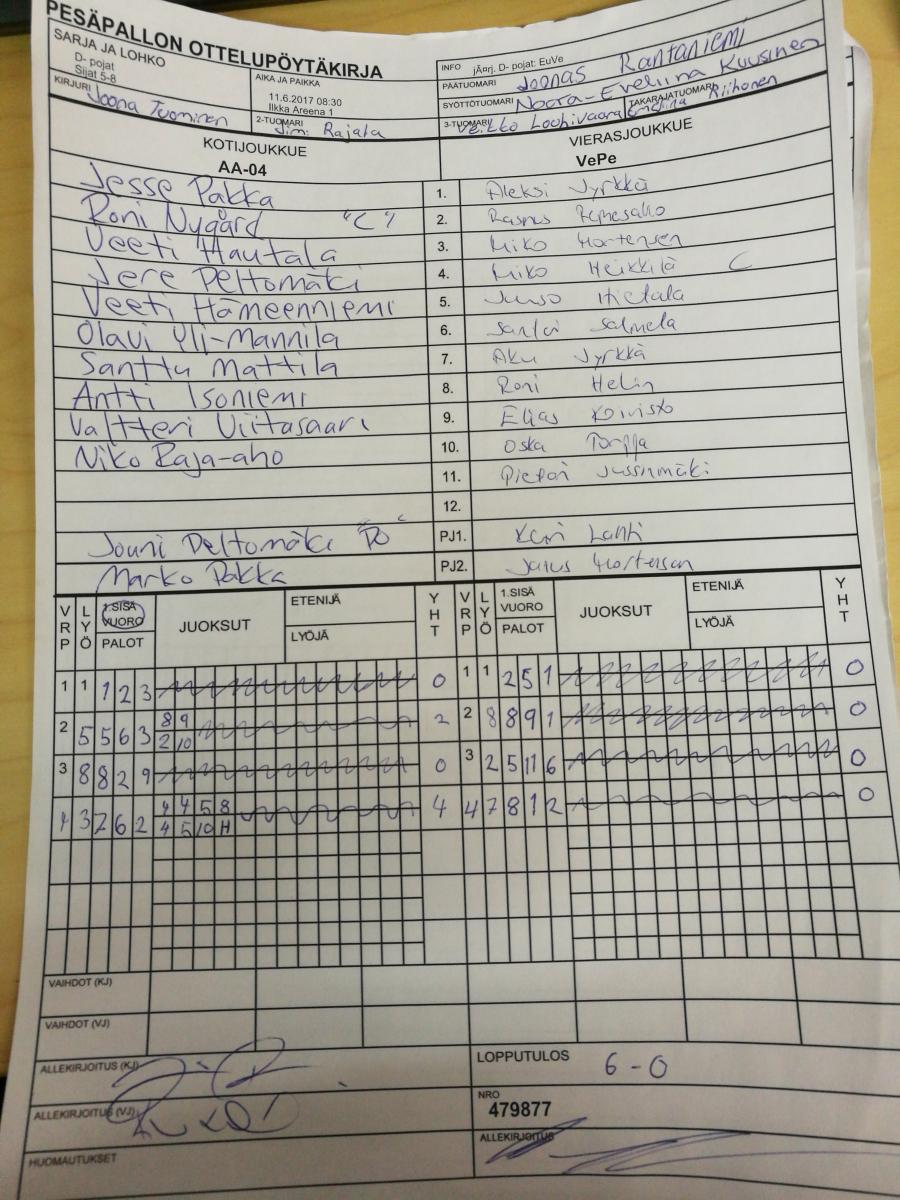 PESÄPALLON OTTELUPÖYTÄKIRJA
SARJA JA LOHKO
D- pojat
Sijat 5-8
AIKA JA PAIKKA
11.6.2017 08:30
Ilkka Areena 1
INFO jÃ¤rj. D- pojat: EuVe
PÄÄTUOMARI Joonas Rantaniemi
SYÖTTÖTUOMARI Noora-Eveliina Kuusinen
KIRJURI Joona Tuominen
2-TUOMARI Jimi Rajala
3-TUOMARI Veikko Loohivaara
TAKARAJATUOMARI Riihonen
KOTIJOUKKUE
AA-04
VIERASJOUKKUE
VePe
Jesse Pakka 1. Aleksi Jyrkkä
Roni Nygård "C" 2. Rasmus
Veeti Hautala 3. Miko Mortensen
Jere Peltomäki 4. Miko Heikkilä C
Veeti Hämeenniemi 5. Juuso Hietala
Olavi Yli-Mannila 6. Santeri Salmela
Santtu Mattila 7. Aku Jyrkkä
Antti Isoniemi 8. Roni Helin
Valtteri Viitasaari 9. Elias Koivisto
Niko Raja-aho 10. Oska Torppa
11. Pietari Jussinmäki
12.
Jouni Peltomäki PJ1. Lahti
Marko Pakka PJ2. Mortensen
VRP LYÖ 1.SISÄ VUORO PALOT JUOKSUT ETENIJÄ LYÖJÄ YHT VRP LYÖ 1.SISÄ VUORO PALOT JUOKSUT ETENIJÄ LYÖJÄ YHT
1 1 1 2 3 0 1 1 2 5 1 0
2 5 5 6 3 8 9 2 2 8 8 9 1 0
2 10
3 8 8 2 9 0 3 2 5 11 6 0
4 3 7 6 2 4 4 5 8 4 4 7 8 1 2 0
4 5 10 H
VAIHDOT (KJ)
VAIHDOT (VJ)
ALLEKIRJOITUS (KJ)
LOPPUTULOS 6-0
ALLEKIRJOITUS (VJ)
NRO
479877
ALLEKIRJOITUS
HUOMAUTUKSET